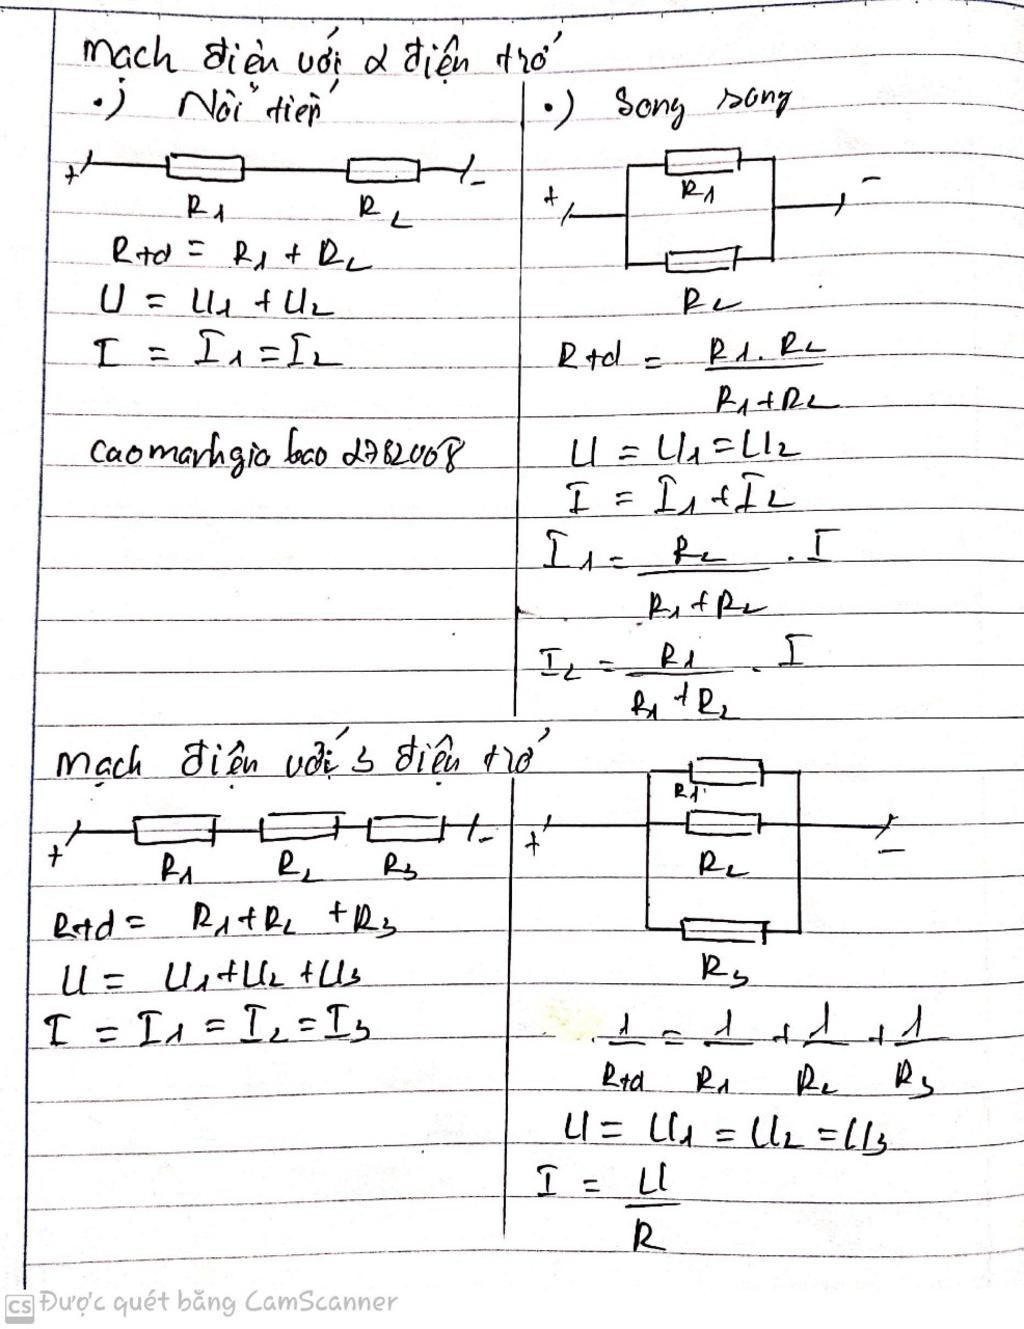 Mạch điện với 2 điện trở
•) Nối tiếp
+ -
R1 R2
Rtđ = R1 + R2
U = U1 + U2
I = I1 = I2
caomanhgia bao 2782008
•) Song song
R1
+ -
R2
Rtd = R1.R2
R1+R2
U = U1 = U2
I = I1 + I2
I1 = R2 . I
R1 + R2
I2 = R1 . I
R1 + R2
Mạch điện với 3 điện trở
+ -
R1 R2 R3
Rtd = R1+R2 +R3
U = U1+U2 +U3
I = I1 = I2 = I3
R1
+ -
R2
R3
1 = 1 + 1 + 1
Rtd R1 R2 R3
U = U1 = U2 = U3
I = U
R
CS Được quét bằng CamScanner